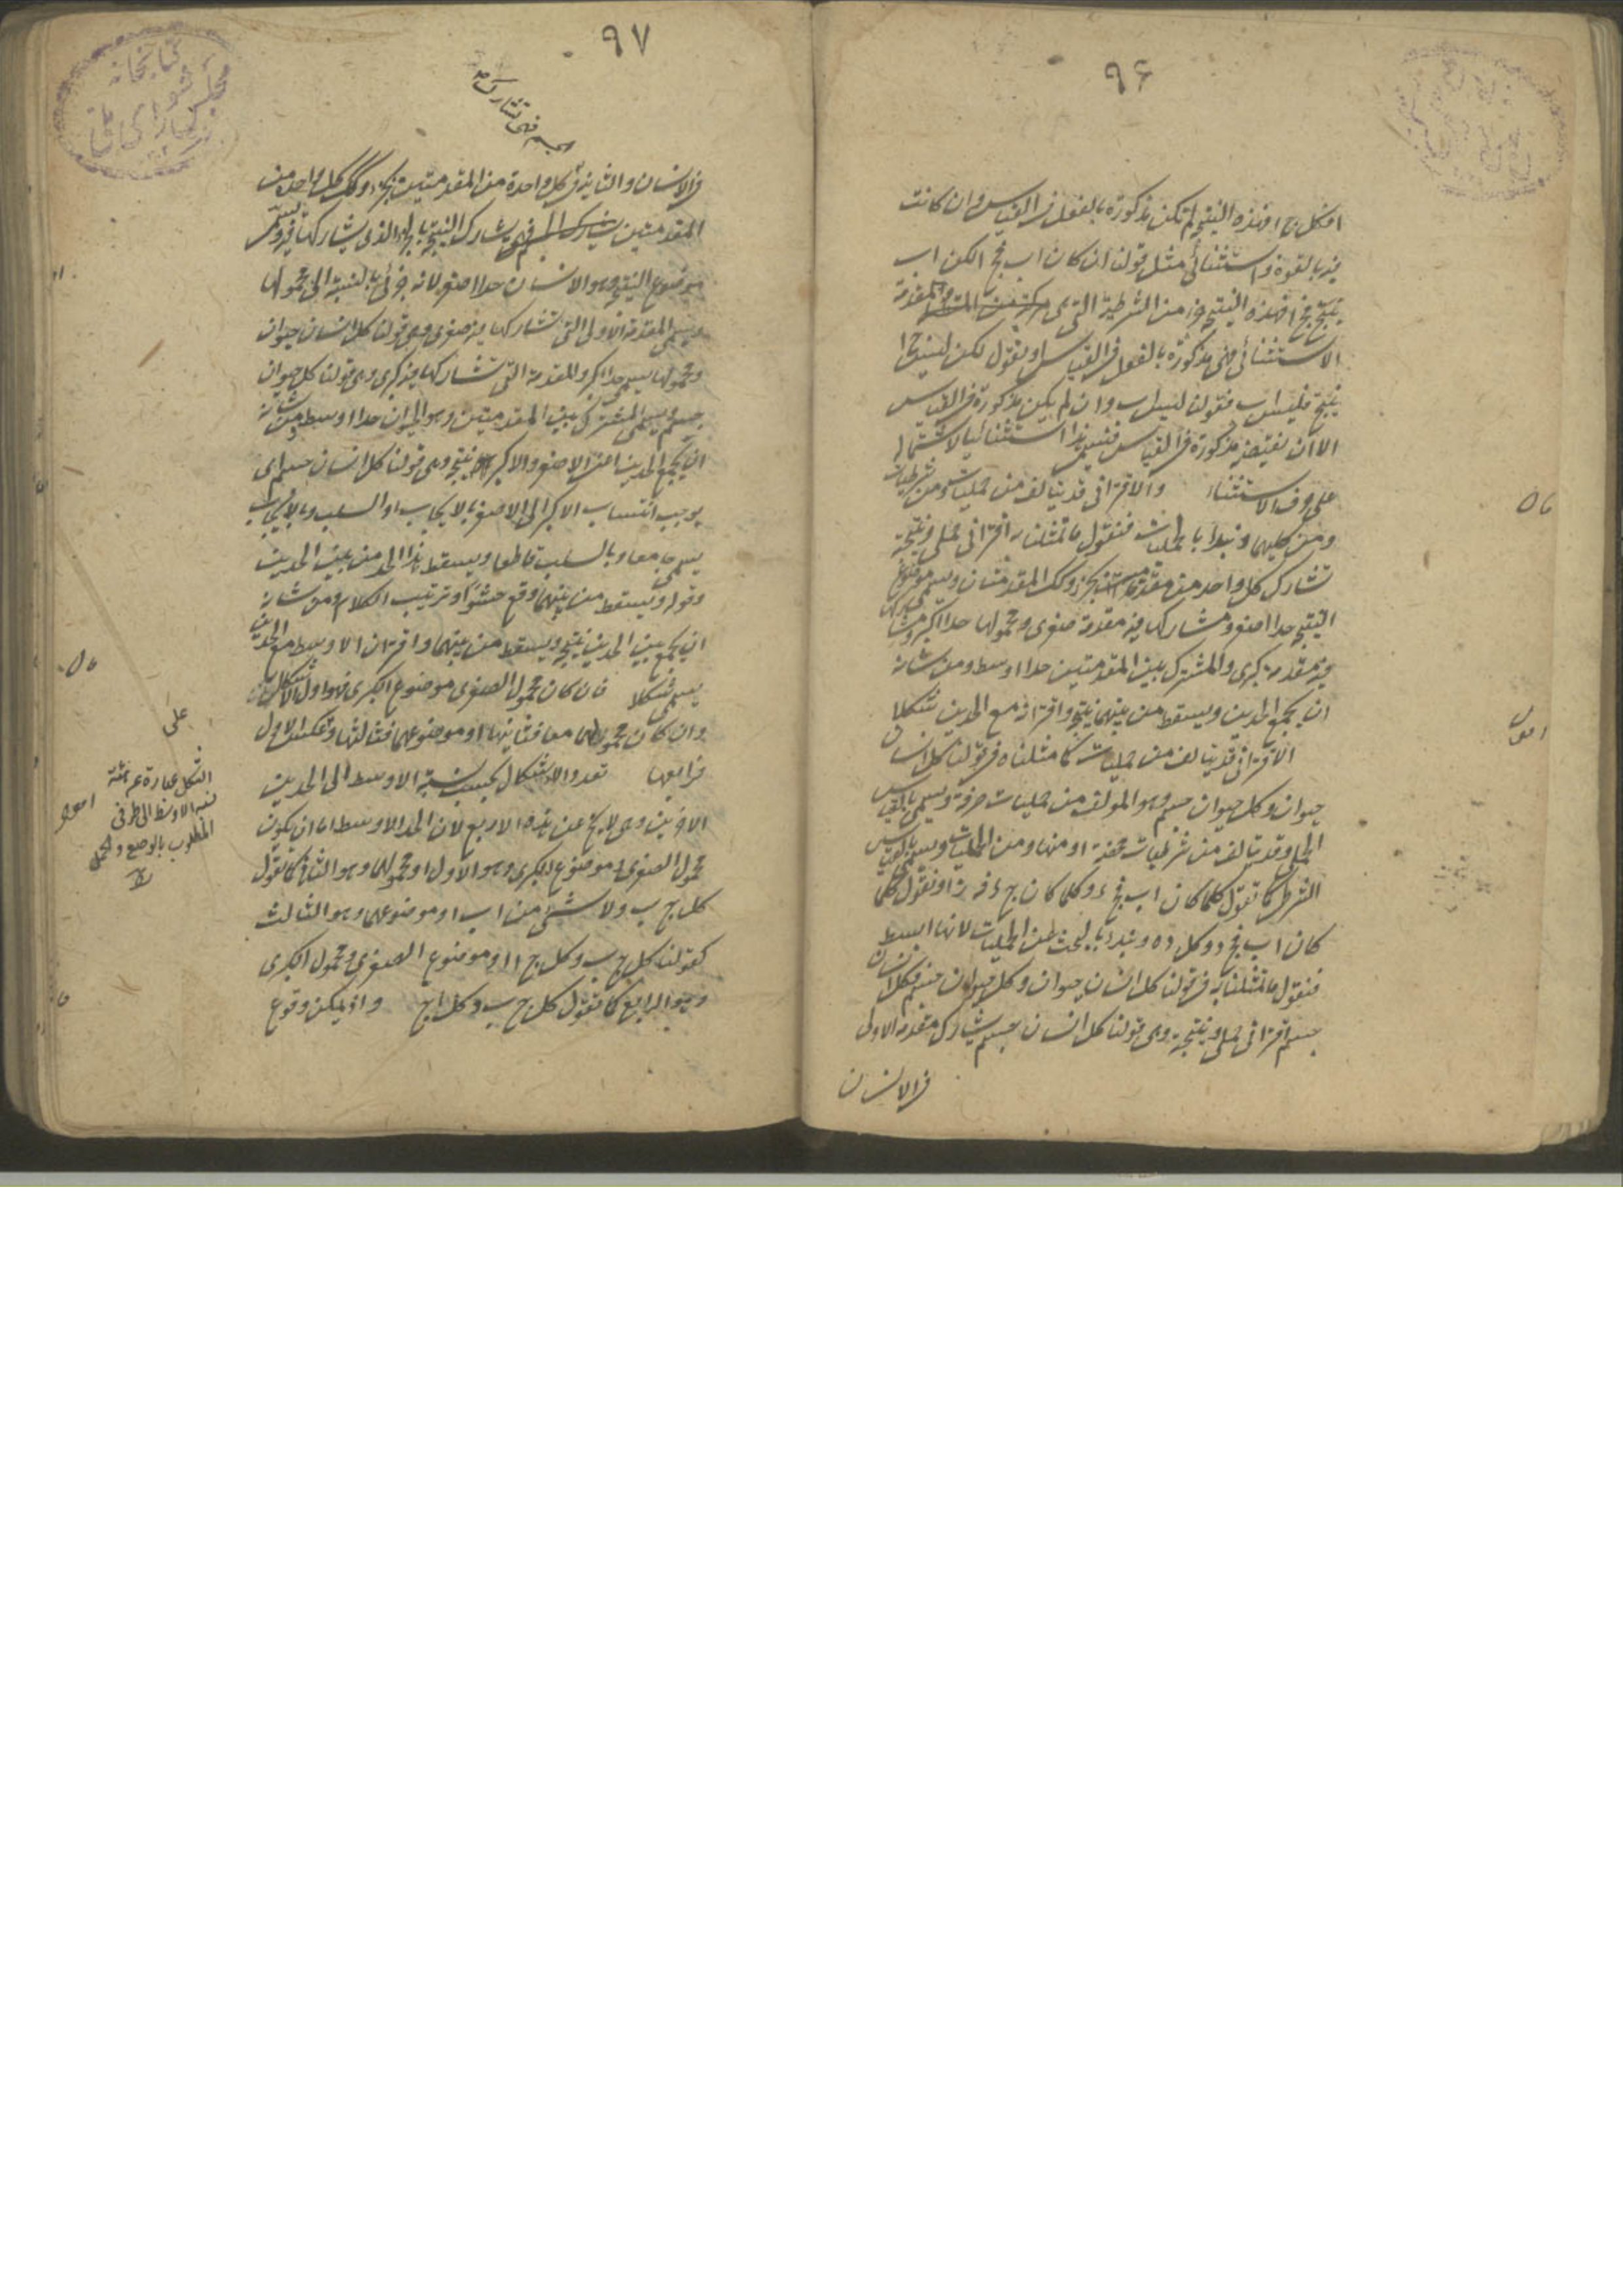 ٩۶
افكل ج ا فهذه النتيجة لم تكن مذكورة بالفعل فى القياس وان كانت
فيه بالقوة واستثنائى مثل قولنا ان كان اب فج ا لكن اب
ينتج فج ا فهذه النتيجة جزء من الشرطية التى هى المقدمة
الاستثنائى فهى مذكورة بالفعل فى القياس او نقول لكن ليس ج ا
ينتج فليس اب فقولنا ليس اب وان لم يكن مذكورة فى القياس
الا ان نقيضه مذكورة فى القياس فسمى هذا استثنائيا لاشتماله
على حرف الاستثناء والاقترانى قد يتالف من حمليات ومن شرطيات
ومن كليهما ونبدأ بالحمليات فنقول ما تمثلنا به اقترانى حملى ونتيجة
تشارك كل واحد من مقدمتيه بجزء وكك المقدمتان ويسمى موضوع
النتيجة حدا اصغر ومشاركها فيه مقدمة صغرى ومحمولها حدا اكبر ومشاركها
فيه مقدمة كبرى والمشترك بين المقدمتين حدا اوسط ومن شانه
ان يجمع الحدين ويسقط من بينهما نتيجة واقترانه مع الحدين شكلا
الاقترانى قد يتالف من حمليات كما مثلناه فى قولنا كل انسان
حيوان وكل حيوان جسم وهو المولف من حمليات صرفة ويسمى بالقياس
الحملى وقد يتالف من شرطيات محضة او منها ومن الحمليات ويسمى بالقياس
الشرطى كما تقول كلما كان اب فج د وكلما كان ج د فه ز او نقول كلما
كان اب فج د وكل د ه ونبدأ بالبحث عن الحمليات لانها ابسط
فنقول ما تمثلنا به فى قولنا كل انسان حيوان وكل حيوان جسم فكل انسان
جسم اقترانى حملى ونتيجته وهى قولنا كل انسان جسم يشارك مقدمة الاولى
فى الانسان
٩٧
فى الانسان والثانية فى كل واحدة من المقدمتين بجزء وكك كل واحدة من
المقدمتين فهى تشارك النتيجة بالجزء الذى يشاركها فيه ويسمى
موضوع النتيجة وهو الانسان حدا اصغر لانه جزئى بالنسبة الى محمولها
ويسمى المقدمة الاولى التى تشاركها فيه صغرى وهى قولنا كل انسان حيوان
ومحمولها يسمى حدا اكبر والمقدمة التى تشاركها فيه كبرى وهى قولنا كل حيوان
جسم ويسمى المشترك بين المقدمتين وهو الحيوان حدا اوسط ومن شانه
ان يجمع الحدين اعنى الاصغر والاكبر نتيجة وهى قولنا كل انسان جسم اى
يوجب انتساب الاكبر الى الاصغر بالايجاب او السلب وبالايجاب
يسمى جامعا وبالسلب قاطعا ويسقط هذا الحد من بين الحدين
وقوله ويسقط من بينهما وقع حشوا وترتيب الكلام ومن شانه
ان يجمع بين الحدين نتيجة ويسقط من بينهما واقتران الاوسط مع الحدين
يسمى شكلا فان كان محمول الصغرى موضوع الكبرى فهو اول الاشكال
وان كان محمولهما معا فثانيها او موضوعهما فثالثها وعكس الاول
فرابعها تعدد الاشكال بحسب نسبة الاوسط الى الحدين
الاخرين وهى لا يخ عن هذه الاربع لان الحد الاوسط اما ان يكون
محمول الصغرى وموضوع الكبرى وهو الاول او محمولهما وهو الثانى كما نقول
كل ج ب ولا شئ من ا ب او موضوعهما وهو الثالث
كقولنا كل ج ب وكل ج ا او موضوع الصغرى ومحمول الكبرى
وهو الرابع كما تقول كل ج ب وكل ا ج واذ يمكن وقوع
على
الشكل عبارة عن هيئة
نسبة الاوسط الى طرفى
المطلوب بالوضع والحمل
كتابخانه
مجلس شوراى ملى